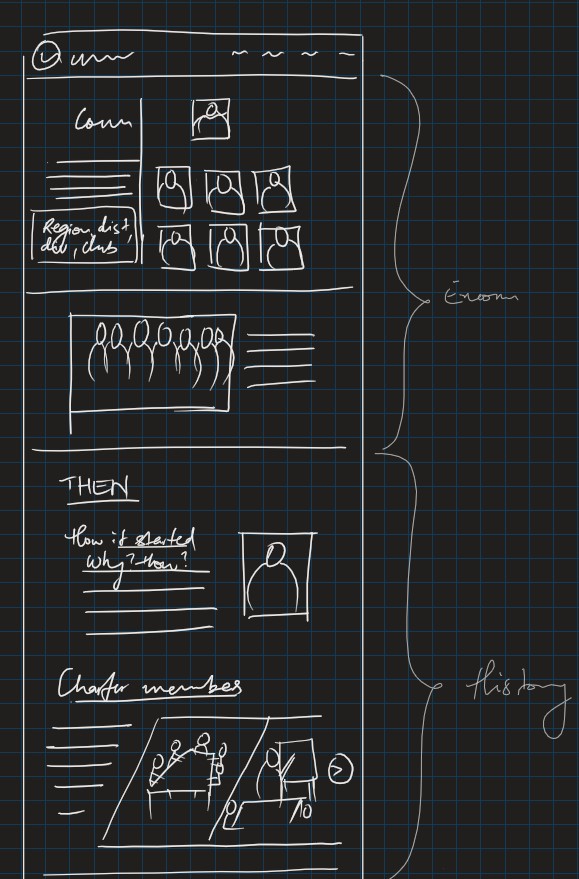 Comm
Region, dist,
div, club
THEN
How it started
Why? How?
Charter members
History